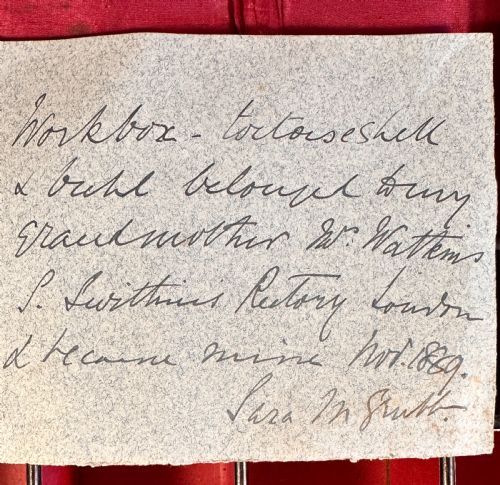 Workbox - tortoiseshell
& buhl belonged to my
grandmother Mrs. Watkins
S. Swithin's Rectory London
& became mine Nov. 1889.
Sara M